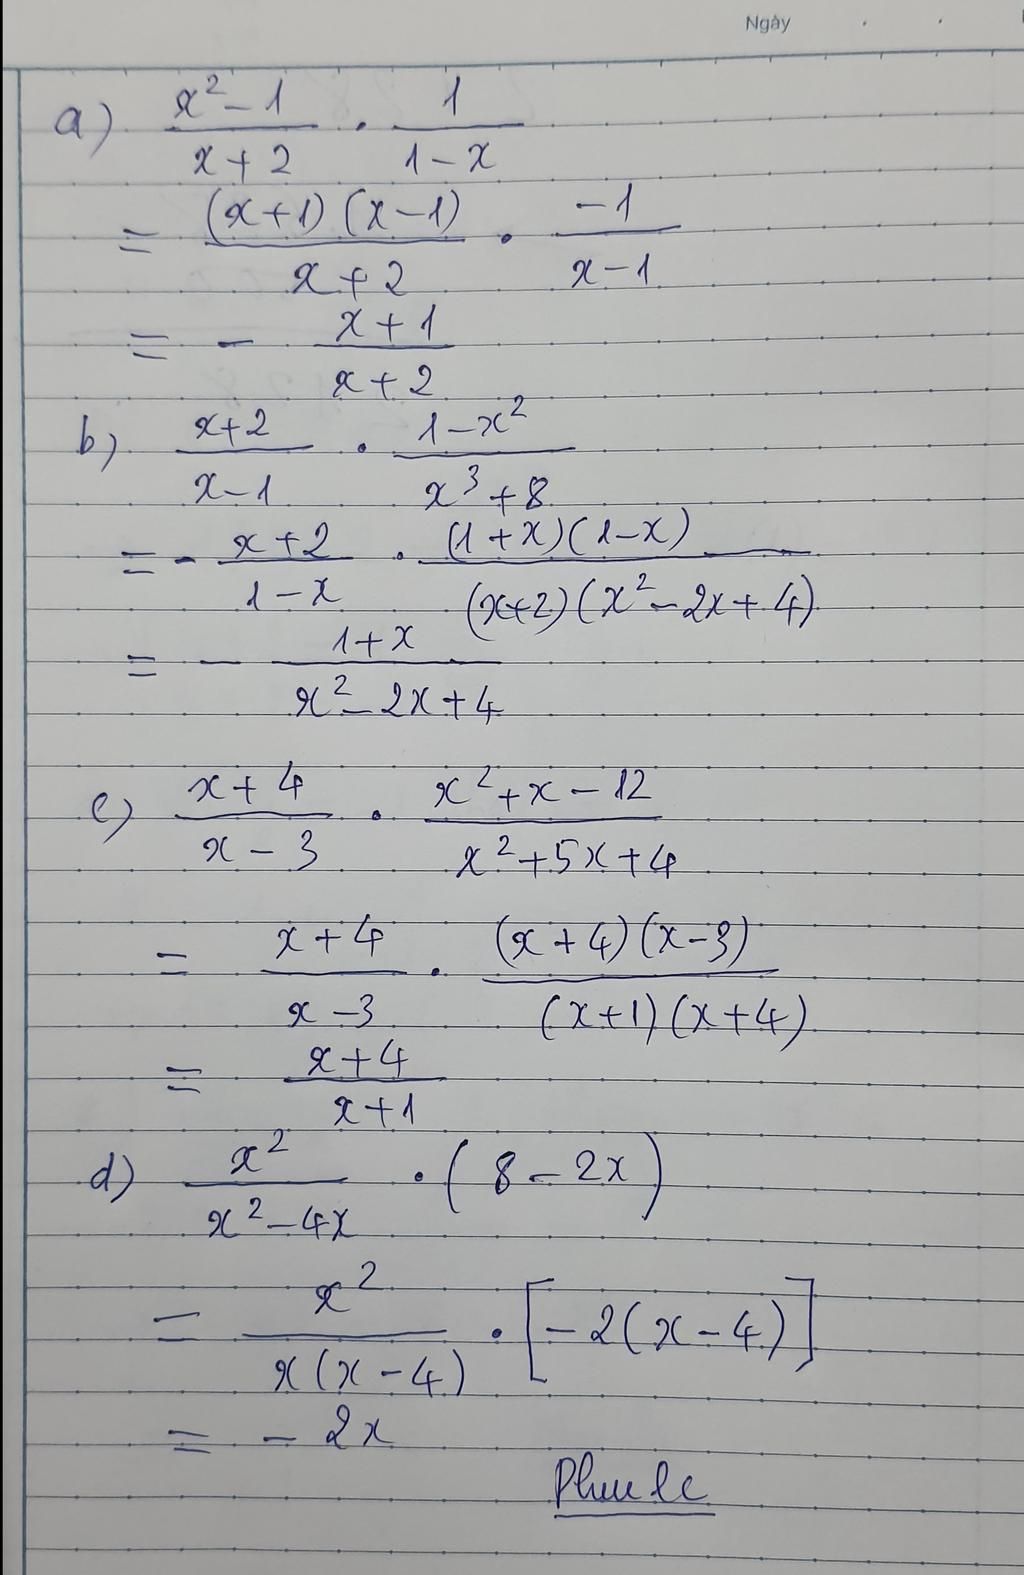 Ngày . .
a) \frac{x^2-1}{x+2} \cdot \frac{1}{1-x}
= \frac{(x+1)(x-1)}{x+2} \cdot \frac{-1}{x-1}
= - \frac{x+1}{x+2}
b) \frac{x+2}{x-1} \cdot \frac{1-x^2}{x^3+8}
= - \frac{x+2}{1-x} \cdot \frac{(1+x)(1-x)}{(x+2)(x^2-2x+4)}
= - \frac{1+x}{x^2-2x+4}
c) \frac{x+4}{x-3} \cdot \frac{x^2+x-12}{x^2+5x+4}
= \frac{x+4}{x-3} \cdot \frac{(x+4)(x-3)}{(x+1)(x+4)}
= \frac{x+4}{x+1}
d) \frac{x^2}{x^2-4x} \cdot (8-2x)
= \frac{x^2}{x(x-4)} \cdot [-2(x-4)]
= - 2x
Phuc Le